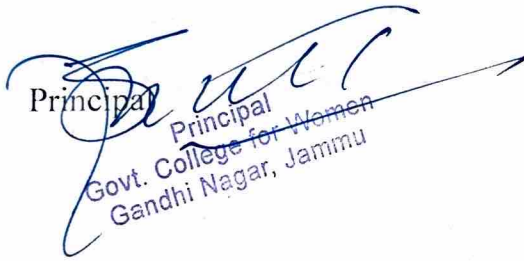 Principal
Principal
Govt. College for Women
Gandhi Nagar, Jammu